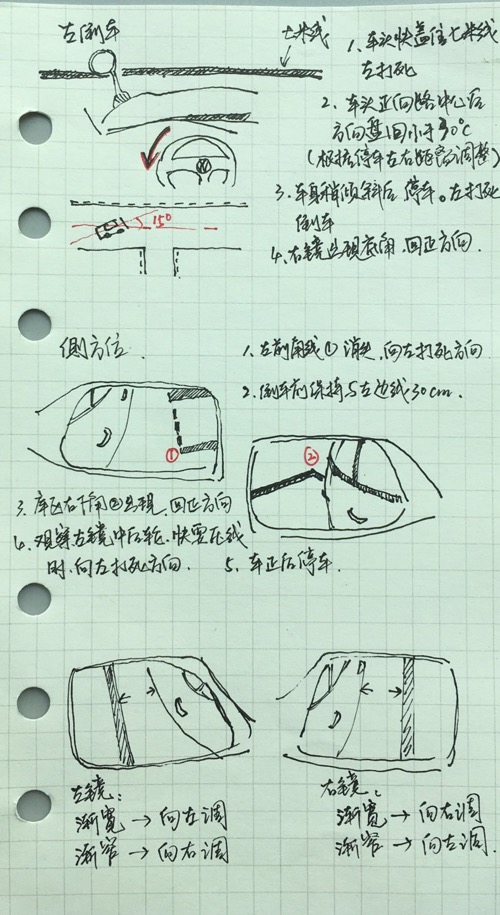 左倒车
七米线
1、车头快盖住七米线
左打死
2、车头正向路中心后
方向盘回小于30℃
(根据停车左右距离调整)
15°
3、车身稍倾斜后停车。左打死
倒车
4、右镜出现底角,回正方向.
侧方位.
1、左前角线①消失,向左打死方向
2、倒车前保持与左边线30cm.
①
②
3、库区右下角②出现,回正方向
4、观察左镜中后轮,快要压线
时,向左打死方向.
5、车正后停车.
左镜:
渐宽→向左调
渐窄→向右调
右镜:
渐宽→向右调
渐窄→向左调.